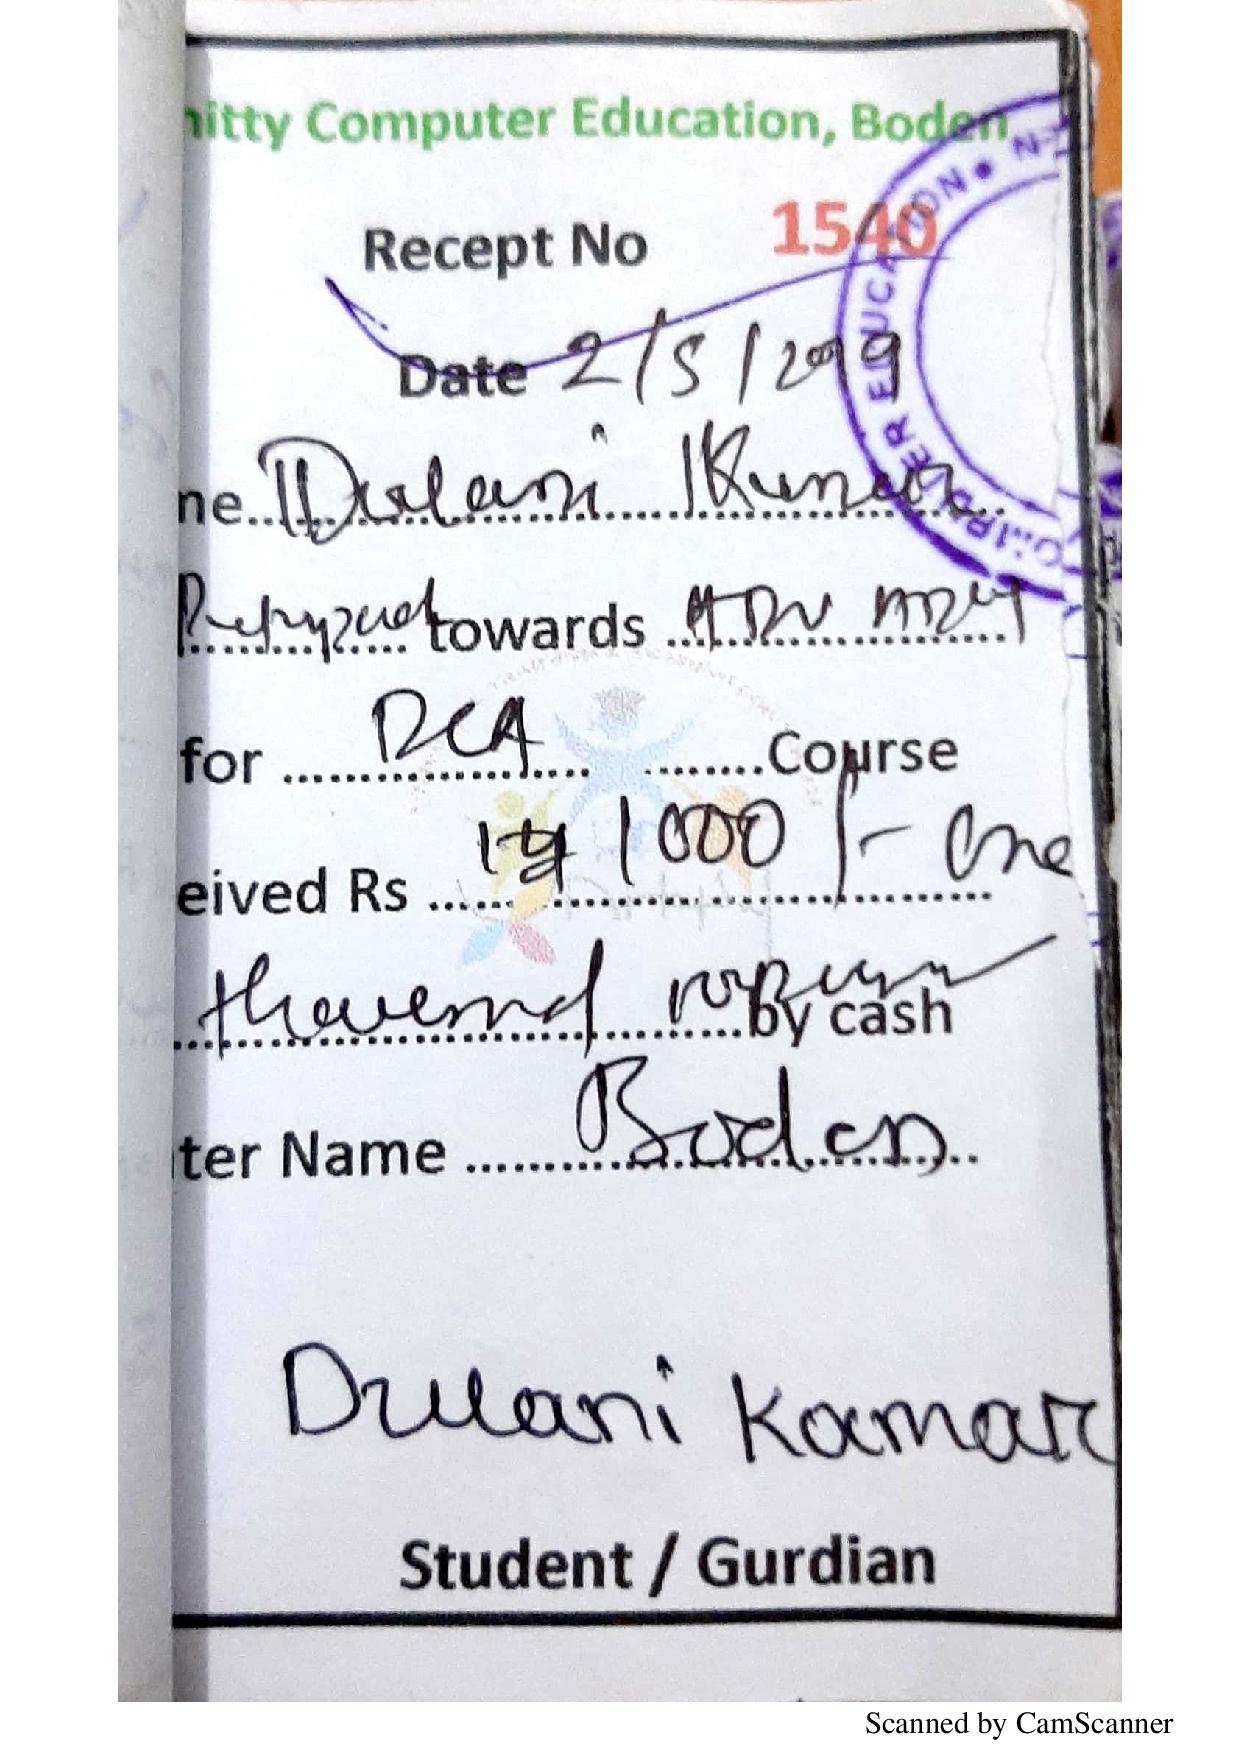 nitty Computer Education, Boden
Recept No 1540
Date 2/5/2019
ne Dulani Kumar
towards
for DCA Course
eived Rs 1000/- One
thousand rupees by cash
ter Name Boden
Dulani Kumar
Student / Gurdian
Scanned by CamScanner